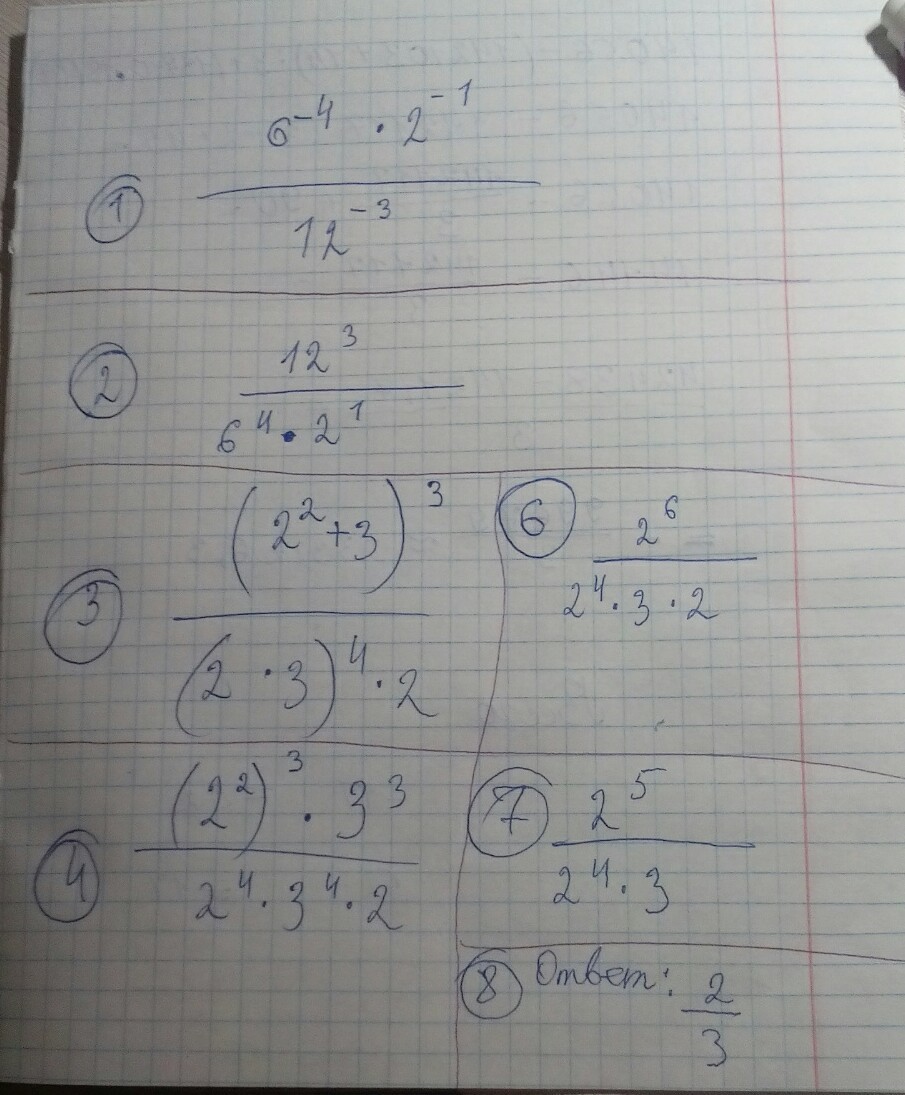 ① 6⁻⁴ · 2⁻¹
12⁻³
② 12³
6⁴ · 2¹
③ (2² + 3)³
(2 · 3)⁴ · 2
④ (2²)³ · 3³
2⁴ · 3⁴ · 2
⑥ 2⁶
2⁴ · 3 · 2
⑦ 2⁵
2⁴ · 3
⑧ Ответ: 2
3